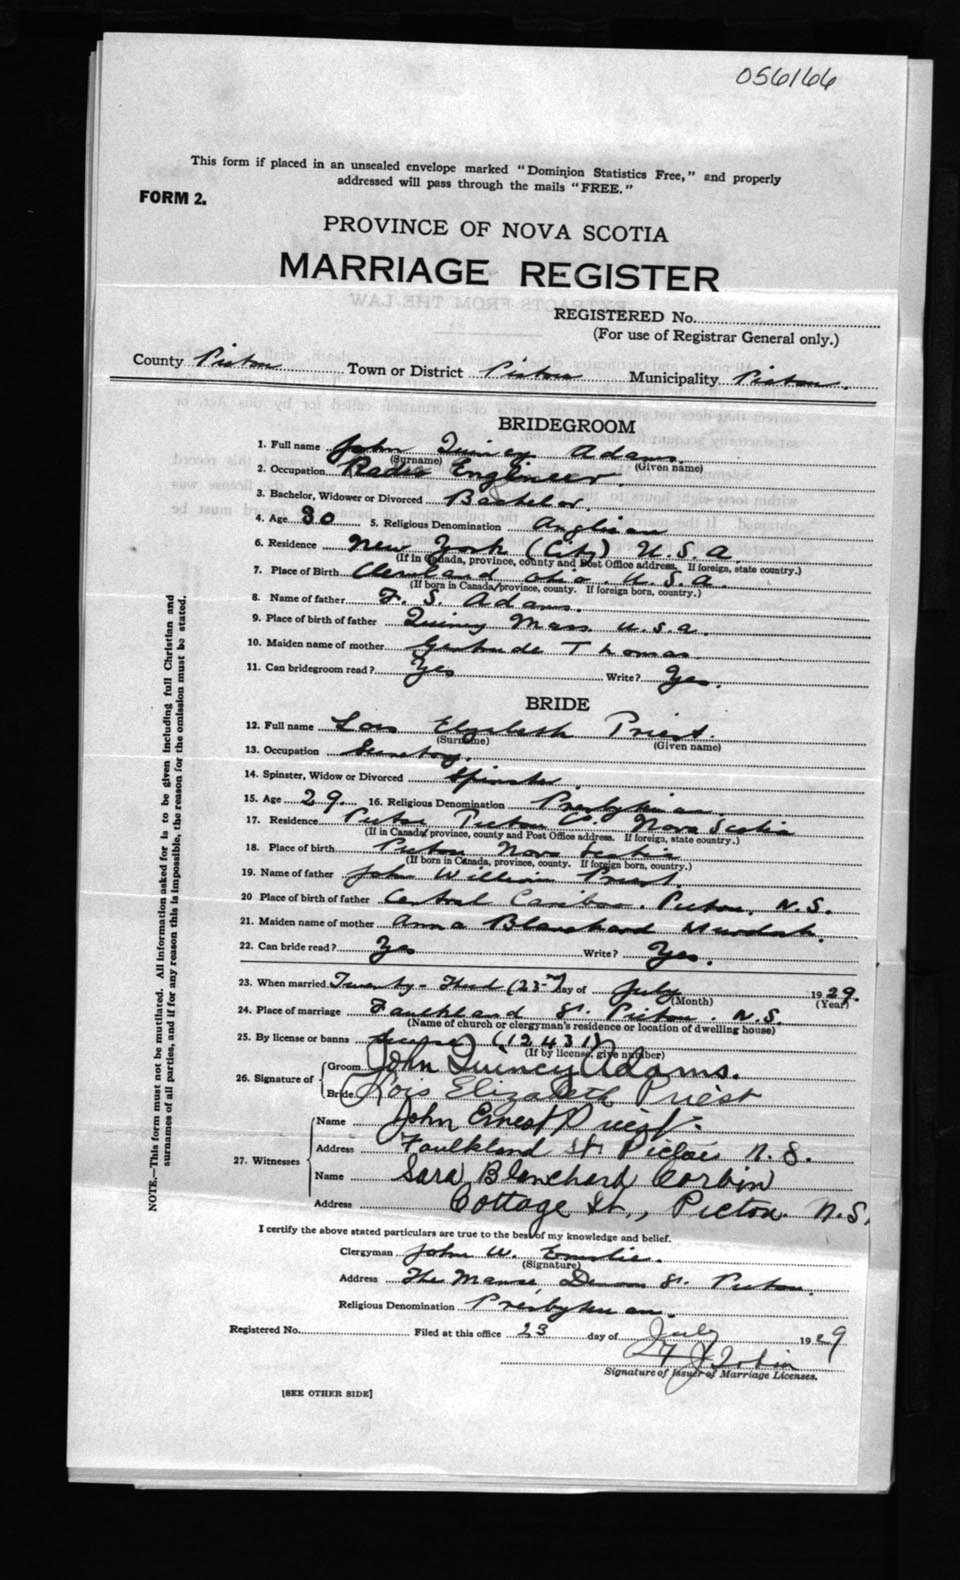 056166
This form if placed in an unsealed envelope marked "Dominion Statistics Free," and properly
addressed will pass through the mails "FREE."
FORM 2.
PROVINCE OF NOVA SCOTIA
MARRIAGE REGISTER
REGISTERED No.
(For use of Registrar General only.)
County Pictou Town or District Pictou Municipality Pictou.
BRIDEGROOM
1. Full name John Quincy Adams.
(Surname) (Given name)
2. Occupation Radio Engineer.
3. Bachelor, Widower or Divorced Bachelor.
4. Age 30 5. Religious Denomination Anglican
6. Residence New York (City) U.S.A.
(If in Canada, province, county and Post Office address. If foreign, state country.)
7. Place of Birth Cleveland Ohio. U.S.A.
(If born in Canada, province, county. If foreign born, country.)
8. Name of father F. S. Adams.
9. Place of birth of father Quincy Mass U.S.A.
10. Maiden name of mother Gertrude Thomas
11. Can bridegroom read? Yes Write? Yes.
BRIDE
12. Full name Lois Elizabeth Priest.
(Surname) (Given name)
13. Occupation Secretary.
14. Spinster, Widow or Divorced Spinster.
15. Age 29. 16. Religious Denomination Presbyterian
17. Residence Pictou Pictou Co. Nova Scotia
(If in Canada, province, county and Post Office address. If foreign, state country.)
18. Place of birth Pictou Nova Scotia
(If born in Canada, province, county. If foreign born, country.)
19. Name of father John William Priest.
20 Place of birth of father Central Caribou. Pictou. N.S.
21. Maiden name of mother Anna Blanchard Murdoch.
22. Can bride read? Yes Write? Yes.
23. When married Twenty-Third (23rd) day of July 1929.
(Month) (Year)
24. Place of marriage Faulkland St. Pictou. N.S.
(Name of church or clergyman's residence or location of dwelling house)
25. By license or banns License (12431)
(If by license, give number)
26. Signature of Groom John Quincy Adams.
Bride Lois Elizabeth Priest
27. Witnesses Name John Ernest Priest.
Address Faulkland St. Pictou N.S.
Name Sara Blanchard Corbin
Address Cottage St., Pictou N.S.
I certify the above stated particulars are true to the best of my knowledge and belief.
Clergyman John W.
(Signature)
Address The Manse, St. Pictou.
Religious Denomination Presbyterian.
Registered No. Filed at this office 23 day of July 1929
Signature of Issuer of Marriage Licenses.
[SEE OTHER SIDE]
NOTE.—This form must not be mutilated. All information asked for is to be given including full Christian and
surnames of all parties, and if for any reason this is impossible, the reason for the omission must be stated.